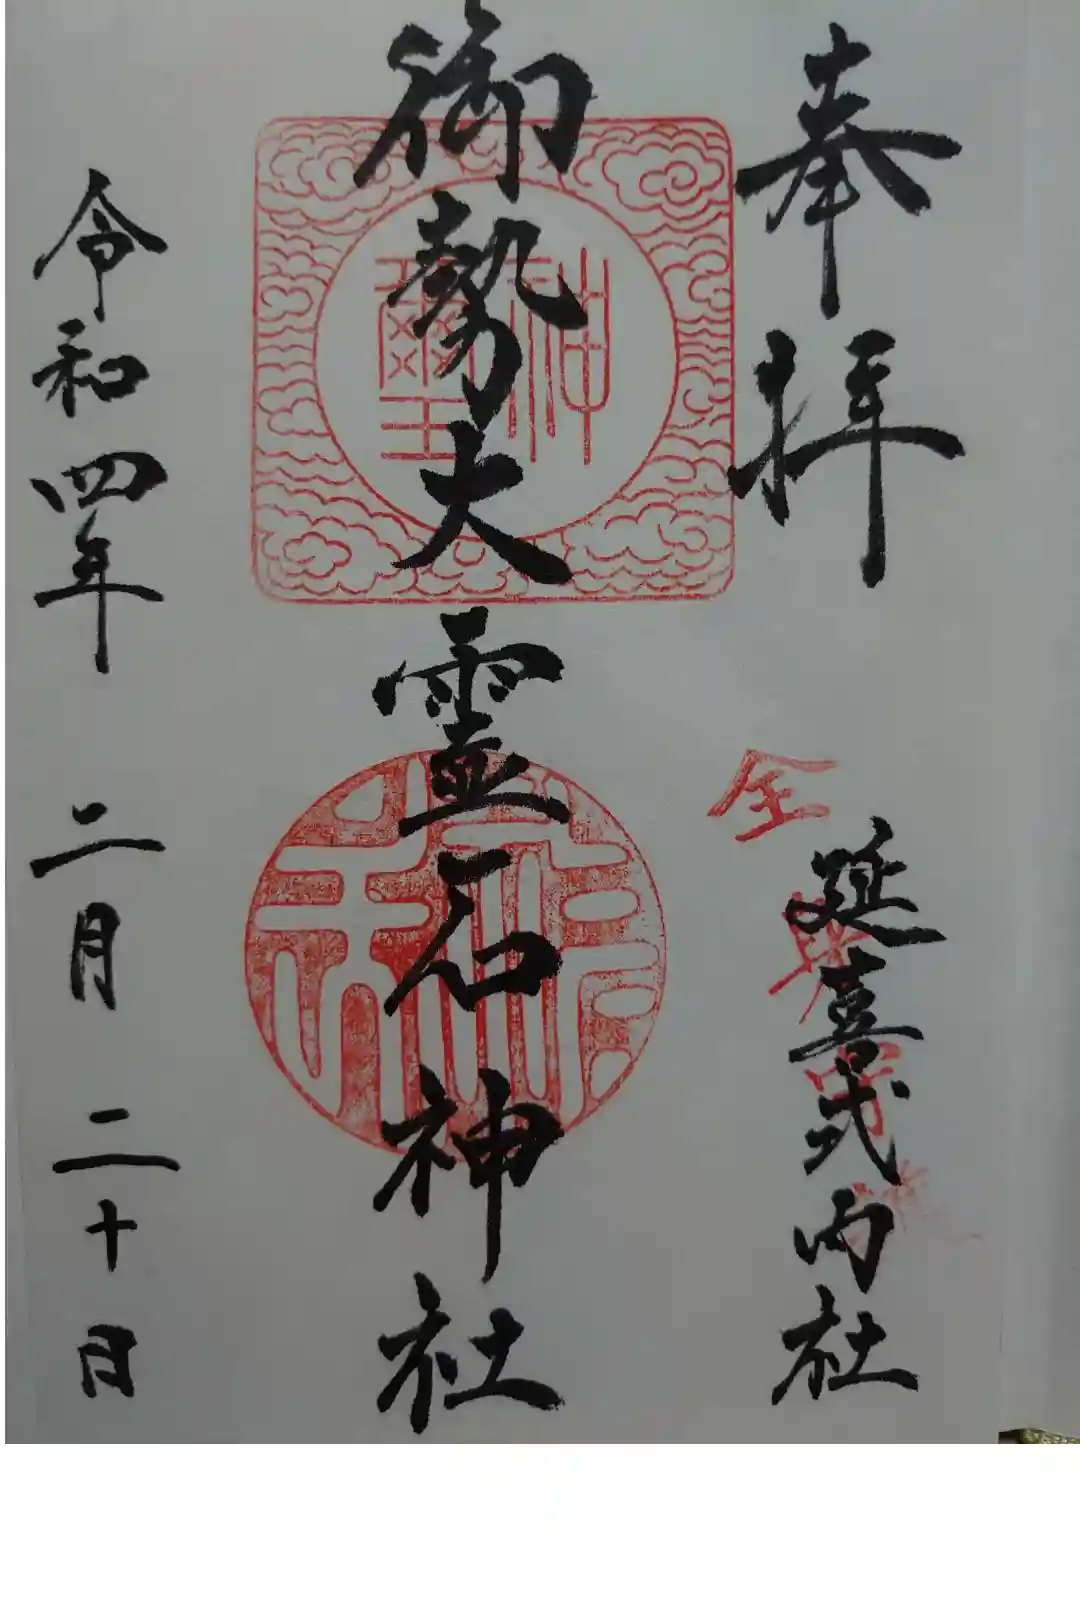 奉拝
延喜式内社
御勢大霊石神社
神璽
令和四年 二月 二十日